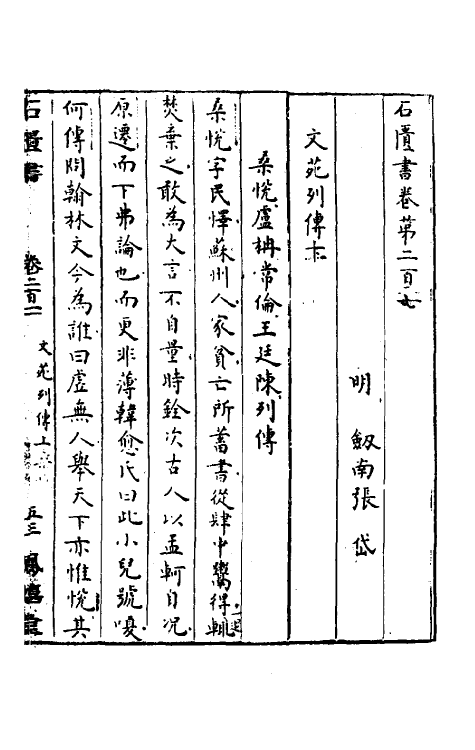 石匱書卷第二百
明　劔南張岱
文苑列傳
桑悅盧柟常倫王廷陳列傳
桑悅字民懌蘇州人家貧亡所蓄書從肆中鬻得輒
焚棄之敢為大言不自量時銓次古人以孟軻自況
原遷而下弗論也而更非薄韓愈氏曰此小兒號嗄
何傳問翰林文今為誰曰虛無人舉天下亦惟悅其
石匱書
卷二百
文苑列傳上
五三
鳳嬉堂